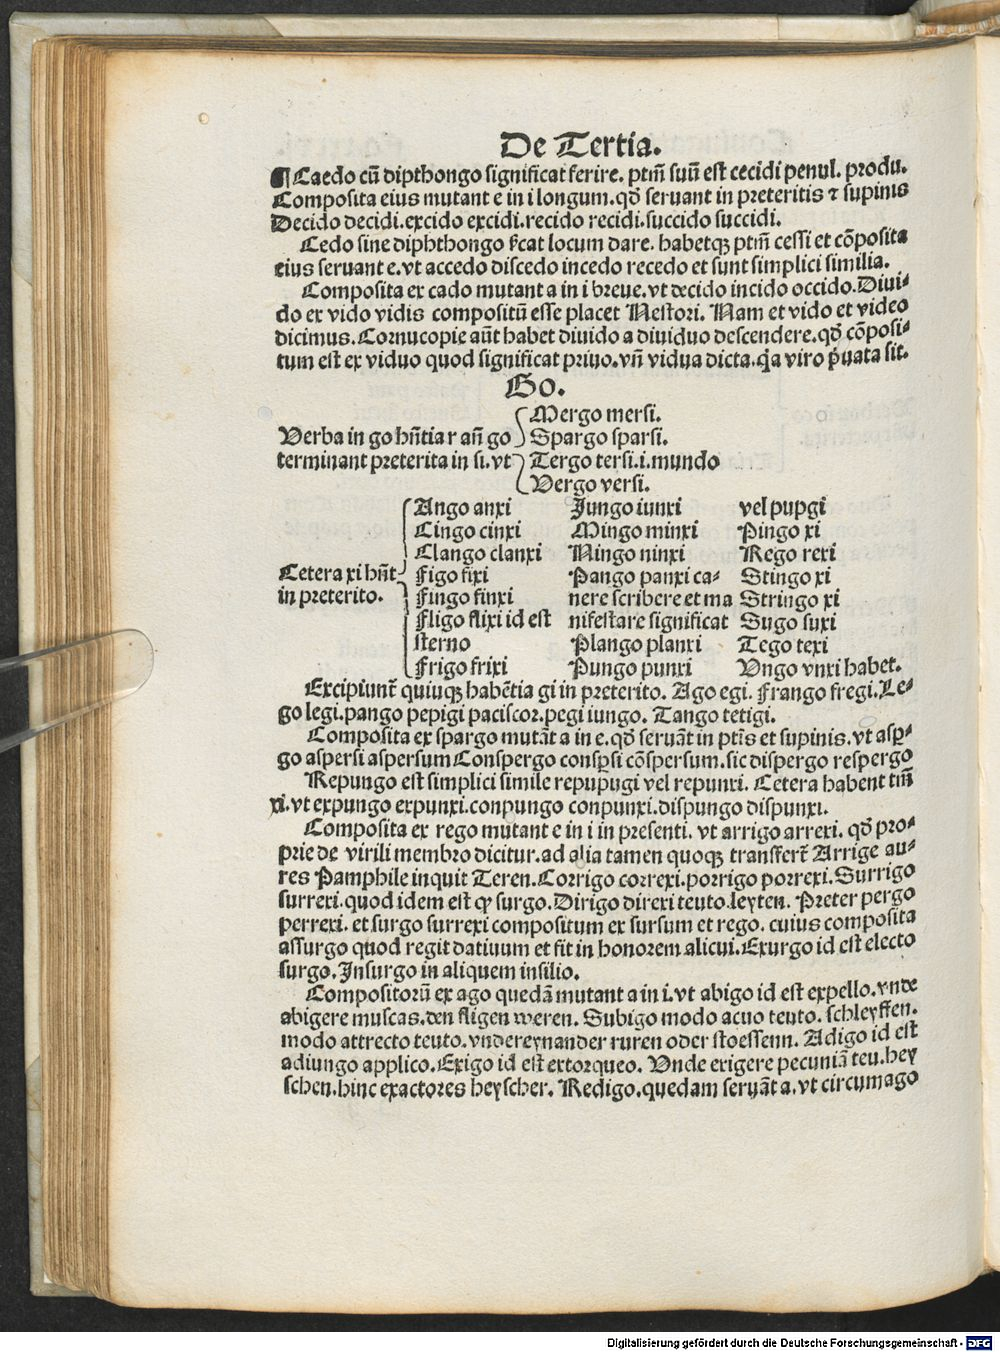 De Tertia.
¶ Caedo cū dipthongo significat ferire. ptm̄ suū est cecidi penul. produ.
Composita eius mutant e in i longum. qđ seruant in preteritis ⁊ supinis
Decido decidi. excido excidi. recido recidi. succido succidi.
Cedo sine diphthongo locum dare. habetqꝫ ptm̄ cessi et cōposita
eius seruant e. vt accedo discedo incedo recedo et sunt simplici similia.
Composita ex cado mutant a in i breue. vt decido incido occido. Diui-
do ex vido vidis compositū esse placet Nestori. Nam et vido et video
dicimus. Cornucopie aūt habet diuido a diuiduo descendere. qđ cōposi-
tum est ex viduo quod significat priuo. vn̄ vidua dicta. q̄a viro p̄uata sit.
Go.
Mergo mersi.
Verba in go hn̄tia r an̄ go Spargo sparsi.
terminant preterita in si. vt Tergo tersi. i. mundo
Vergo versi.
Ango anxi Jungo iunxi vel pupgi
Cingo cinxi Mingo minxi Pingo xi
Clango clanxi Ningo ninxi Rego rexi
Cetera xi hn̄t Figo fixi Pango panxi ca- Stingo xi
in preterito. Fingo finxi nere scribere et ma Stringo xi
Fligo flixi id est nifestare significat Sugo suxi
sterno Plango planxi Tego texi
Frigo frixi Pungo punxi Vngo vnxi habet.
Excipiunt̄ quiuqꝫ habētia gi in preterito. Ago egi. Frango fregi. Le-
go legi. pango pepigi paciscor. pegi iungo. Tango tetigi.
Composita ex spargo mutāt a in e. qđ seruāt in ptīs et supinis. vt asp̄-
go aspersi aspersum Conspergo conspsi cōspersum. sic dispergo respergo
Repungo est simplici simile repupugi vel repunxi. Cetera habent tm̄
xi. vt expungo expunxi. conpungo conpunxi. dispungo dispunxi.
Composita ex rego mutant e in i in presenti. vt arrigo arrexi. qđ pro-
prie de virili membro dicitur. ad alia tamen quoqꝫ transfert̄ Arrige au-
res Pamphile inquit Teren. Corrigo correxi. porrigo porrexi. Surrigo
surrexi. quod idem est qꝫ surgo. Dirigo direxi teuto. leyten. Preter pergo
perrexi. et surgo surrexi compositum ex sursum et rego. cuius composita
assurgo quod regit datiuum et fit in honorem alicui. Exurgo id est electo
surgo. Insurgo in aliquem insilio.
Compositorū ex ago quedā mutant a in i. vt abigo id est expello. vnde
abigere muscas. den fligen weren. Subigo modo acuo teuto. schleyffen.
modo attrecto teuto. vndereynander ruren oder stoessenn. Adigo id est
adiungo applico. Exigo id est extorqueo. Vnde exigere pecuniā teu. hey
schen. hinc exactores heyscher. Redigo. quedam seruāt a. vt circumago
Digitalisierung gefördert durch die Deutsche Forschungsgemeinschaft - DFG